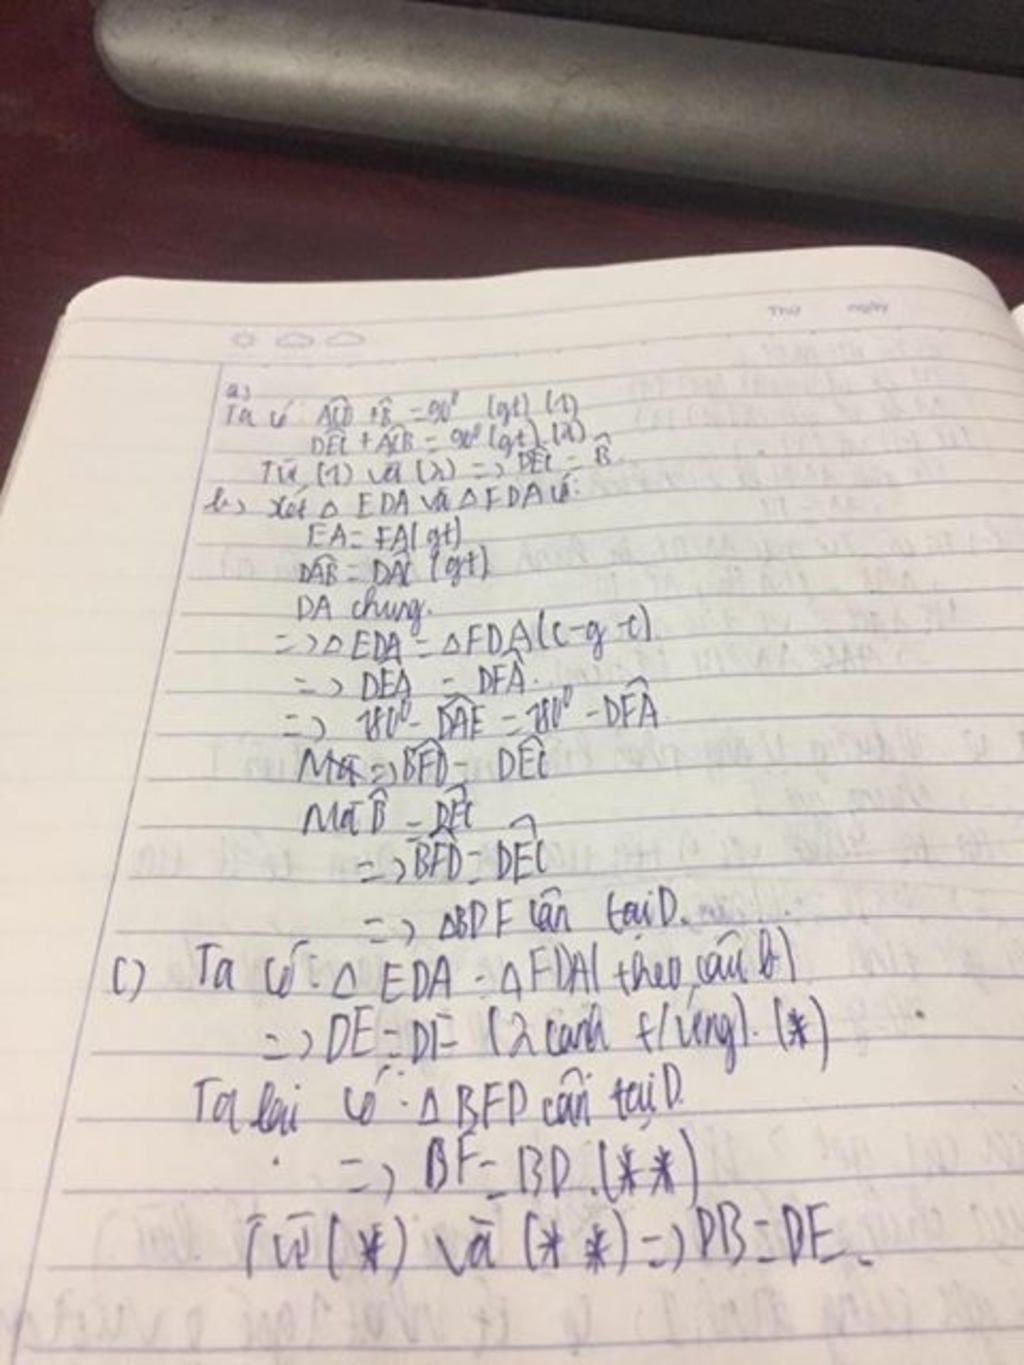 Thứ ngày
a)
Ta có ACD + B̂ = 90⁰ (gt) (1)
DEC + ACB = 90⁰ (gt) (2)
Từ (1) và (2) => DEC = B̂
b) Xét △ EDA và △ FDA có:
EA = FA (gt)
DAB = DAC (gt)
DA chung.
=> △ EDA = △ FDA (c-g-c)
=> DEA = DFA.
=> 180⁰ - DAE = 180⁰ - DFA
=> BFD = DEC
Mà B̂ = DEC
=> BFD = DEC
=> △BDF cân tại D.
c) Ta có: △ EDA = △ FDA (theo câu b)
=> DE = DF (2 cạnh t/ứng). (*)
Ta lại có: △ BFD cân tại D.
=> BF = BD. (**)
Từ (*) và (**) => DB = DE.